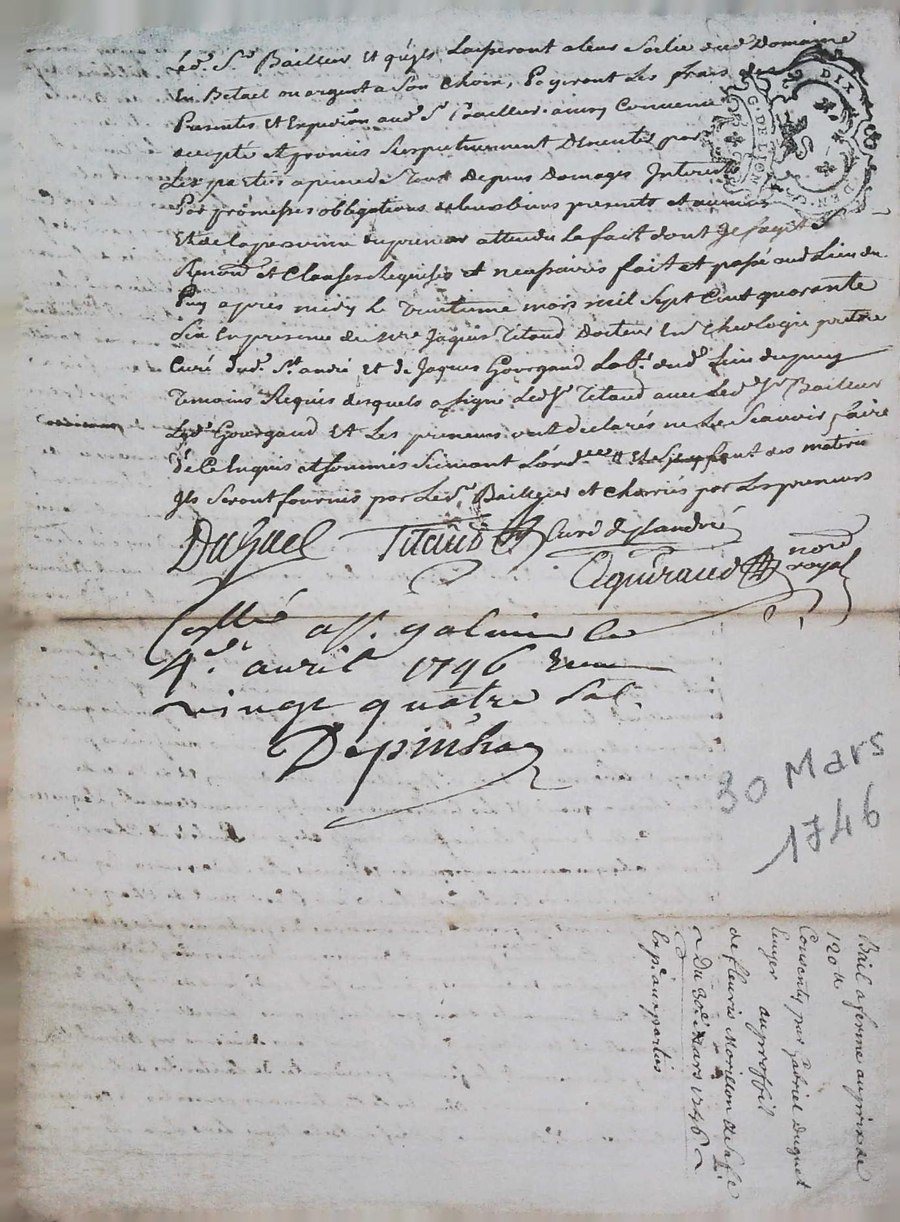 led. Sr. Bailleur Et quils Laisseront a leur Sortie dud. Domaine
En Betail ou argent a Son Choix, Payeront Les frais des
Presentes Et Expedion aud. Sr. Bailleur ainsy Convenu
accepté et promis Respectivement par
Les parties a peine de Tous Depens Domages Interets
Par promesses obligations de leurs biens presents et avenir
Et de la personne du preneur attendu Le fait dont Il sagit S
Renon. et Clauses Requises et necessaires fait et passé aud Lieu du
Puy apres midy Le Trentieme mars mil Sept Cent quarante
Six En presence de Mre Jaques Titaud Docteur En Theologie pretre
Curé dud. St. andré Et de Jaques Gourgaud Labr. dud. Lieu du puy
Temoins Requis desquels a signé Led. Sr. Titaud avec Led. Sr. Bailleur
Led. Gourgaud Et Les preneurs ont declarés ne Le Scavoir faire
de Ce Enquis et sommés Suivant Lordce
Ils Seront fournis par Led. Sr. Bailleur et charriés par Les preneurs
Titaud Curé de St andré
Aguiraud nore royal
Collé a St. galmier le
4e. avril 1746 Recu
vingt quatre Sols.
30 Mars
1746
DIX
G. DE LION
Bail a ferme au prix de
120 ₶
Consenty par Gabriel Duguet
au proffit
de fleuris Morillon
Du 30e Mars 1746
Exp. aux parties